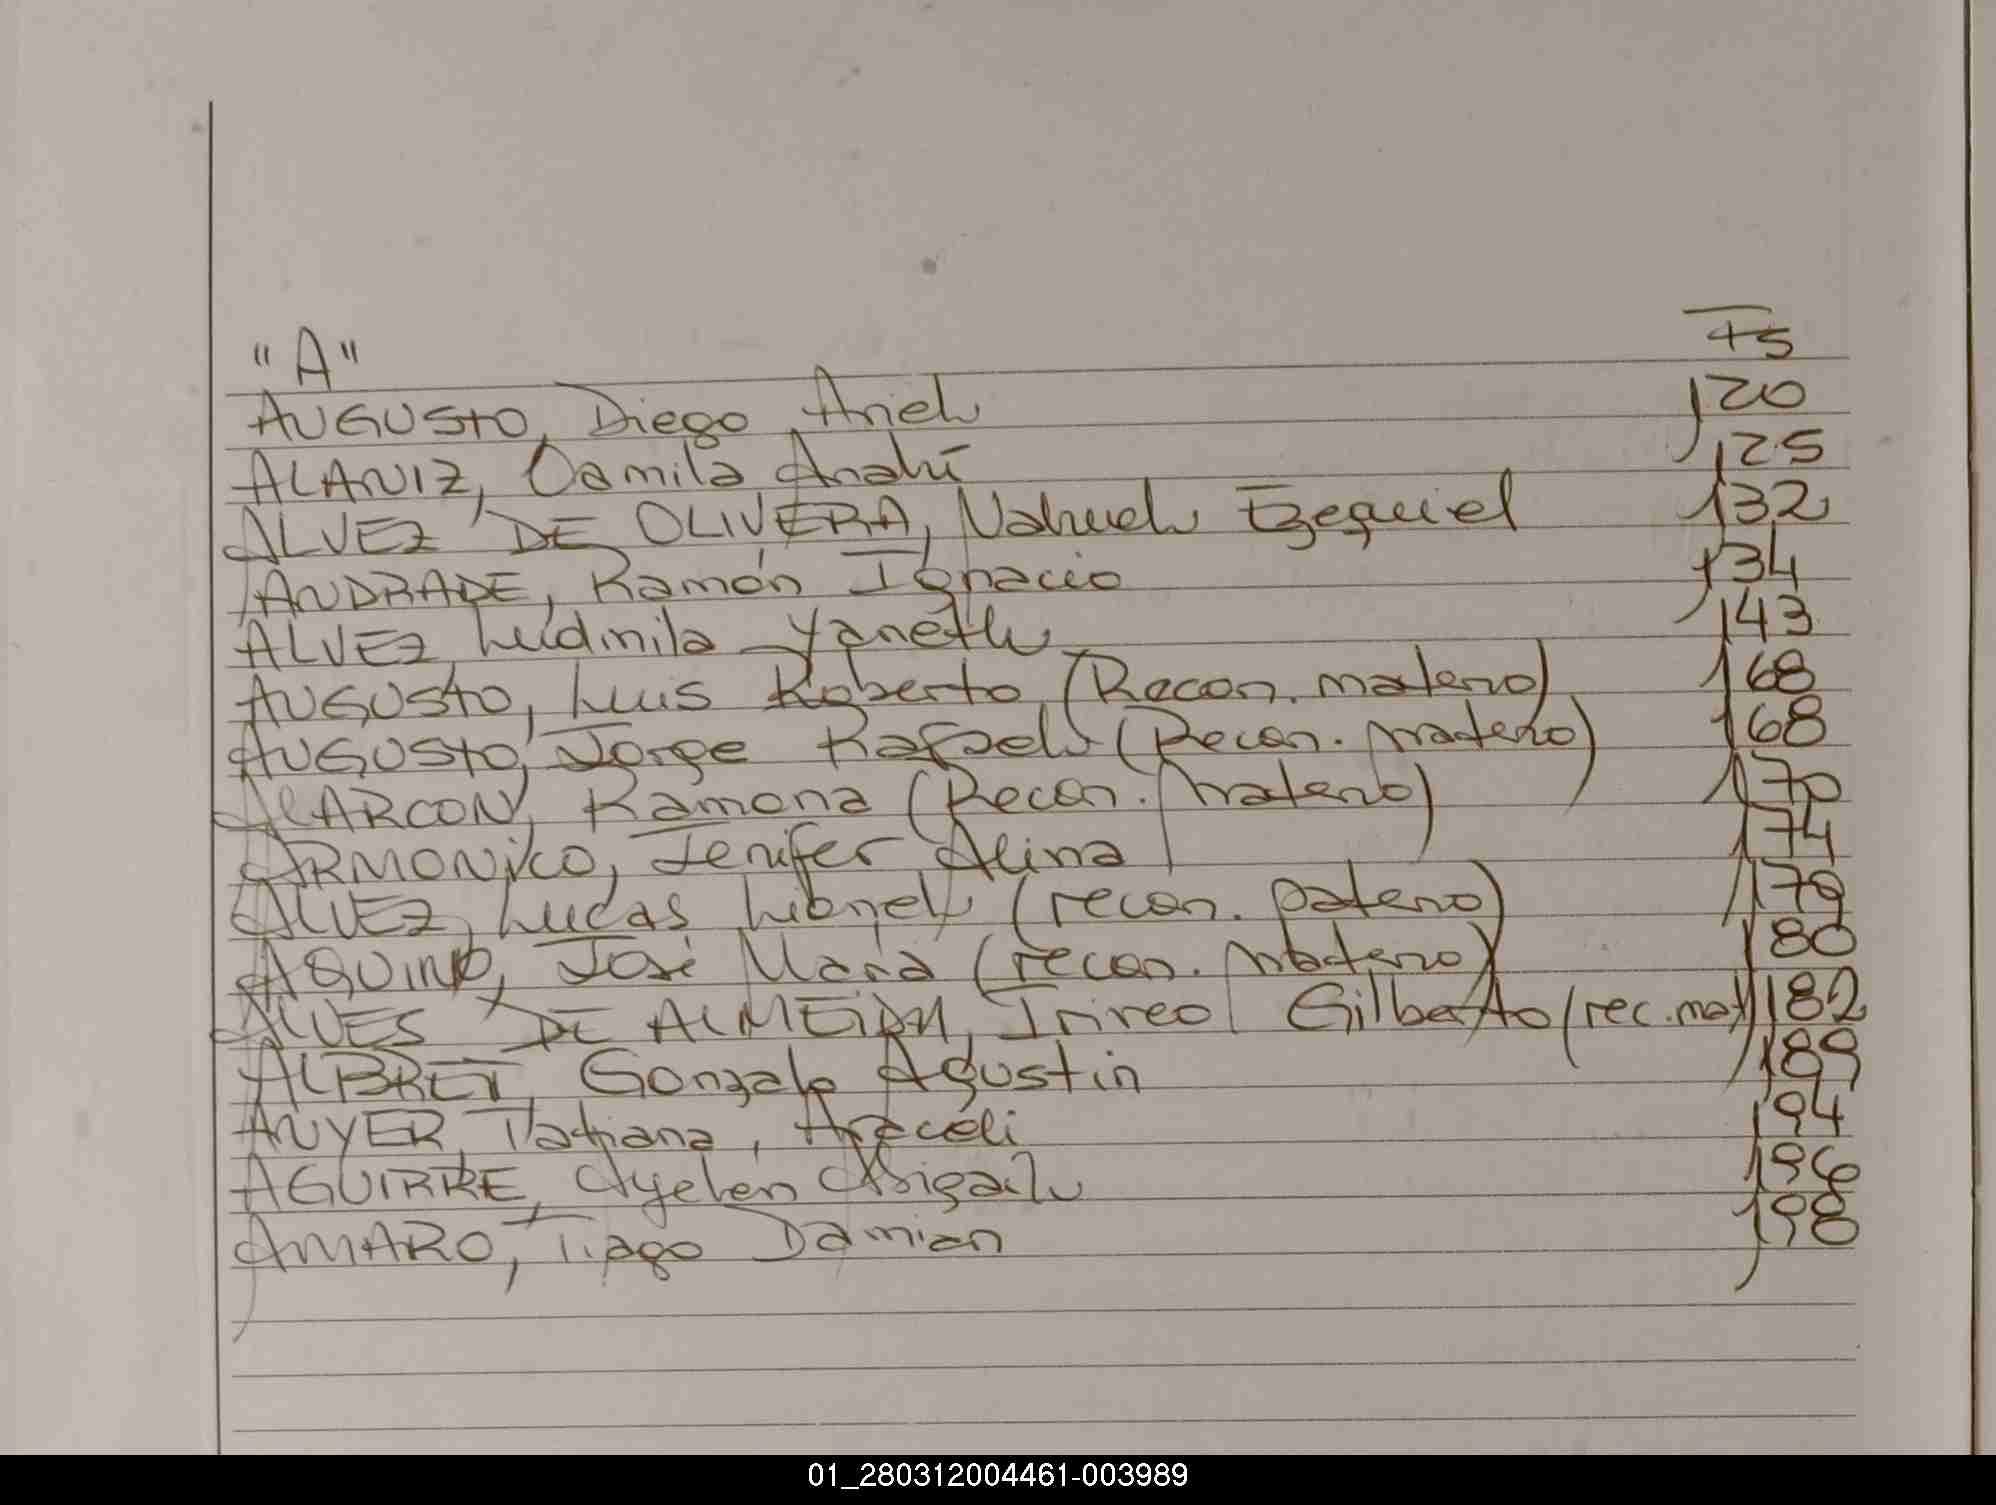 "A" Fs
AUGUSTO, Diego Ariel 120
ALANIZ, Camila Anahí 125
ALVEZ DE OLIVERA, Nahuel Ezequiel 132
ANDRADE, Ramón Ignacio 134
ALVEZ, Ludmila Yaneth 143
AUGUSTO, Luis Roberto (Recon. materno) 168
AUGUSTO, Jorge Rafael (Recon. materno) 168
ALARCON, Ramona (Recon. materno) 170
ARMONICO, Jenifer Alina 174
ALVEZ, Lucas Lionel (recon. paterno) 179
AQUINO, José María (recon. materno) 180
ALVES DE ALMEIDA, Irireo Gilberto (rec. mat) 182
ALBRET, Gonzalo Agustin 189
ANYER, Tatiana, Araceli 194
AGUIRRE, Ayelen Abigail 196
AMARO, Tiago Damian 198
01_280312004461-003989